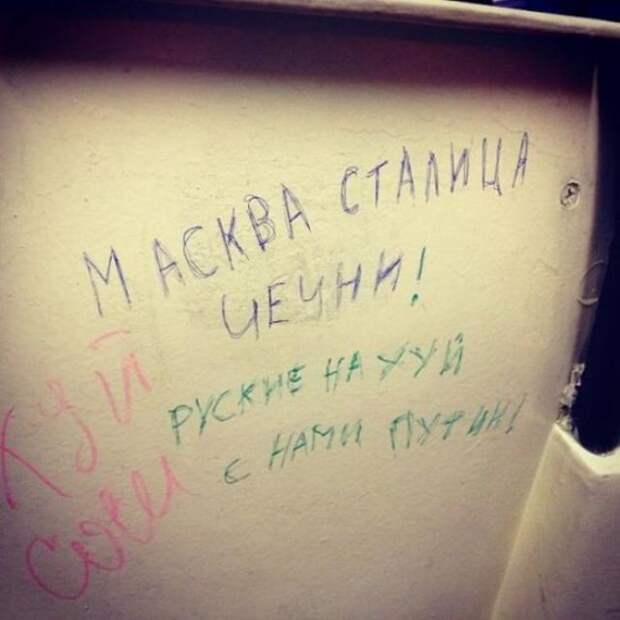 МАСКВА СТАЛИЦА
ЧЕЧНИ!
РУСКИЕ НА ХУЙ
С НАМИ ПУТИН!
ХУЙ
СОСИ